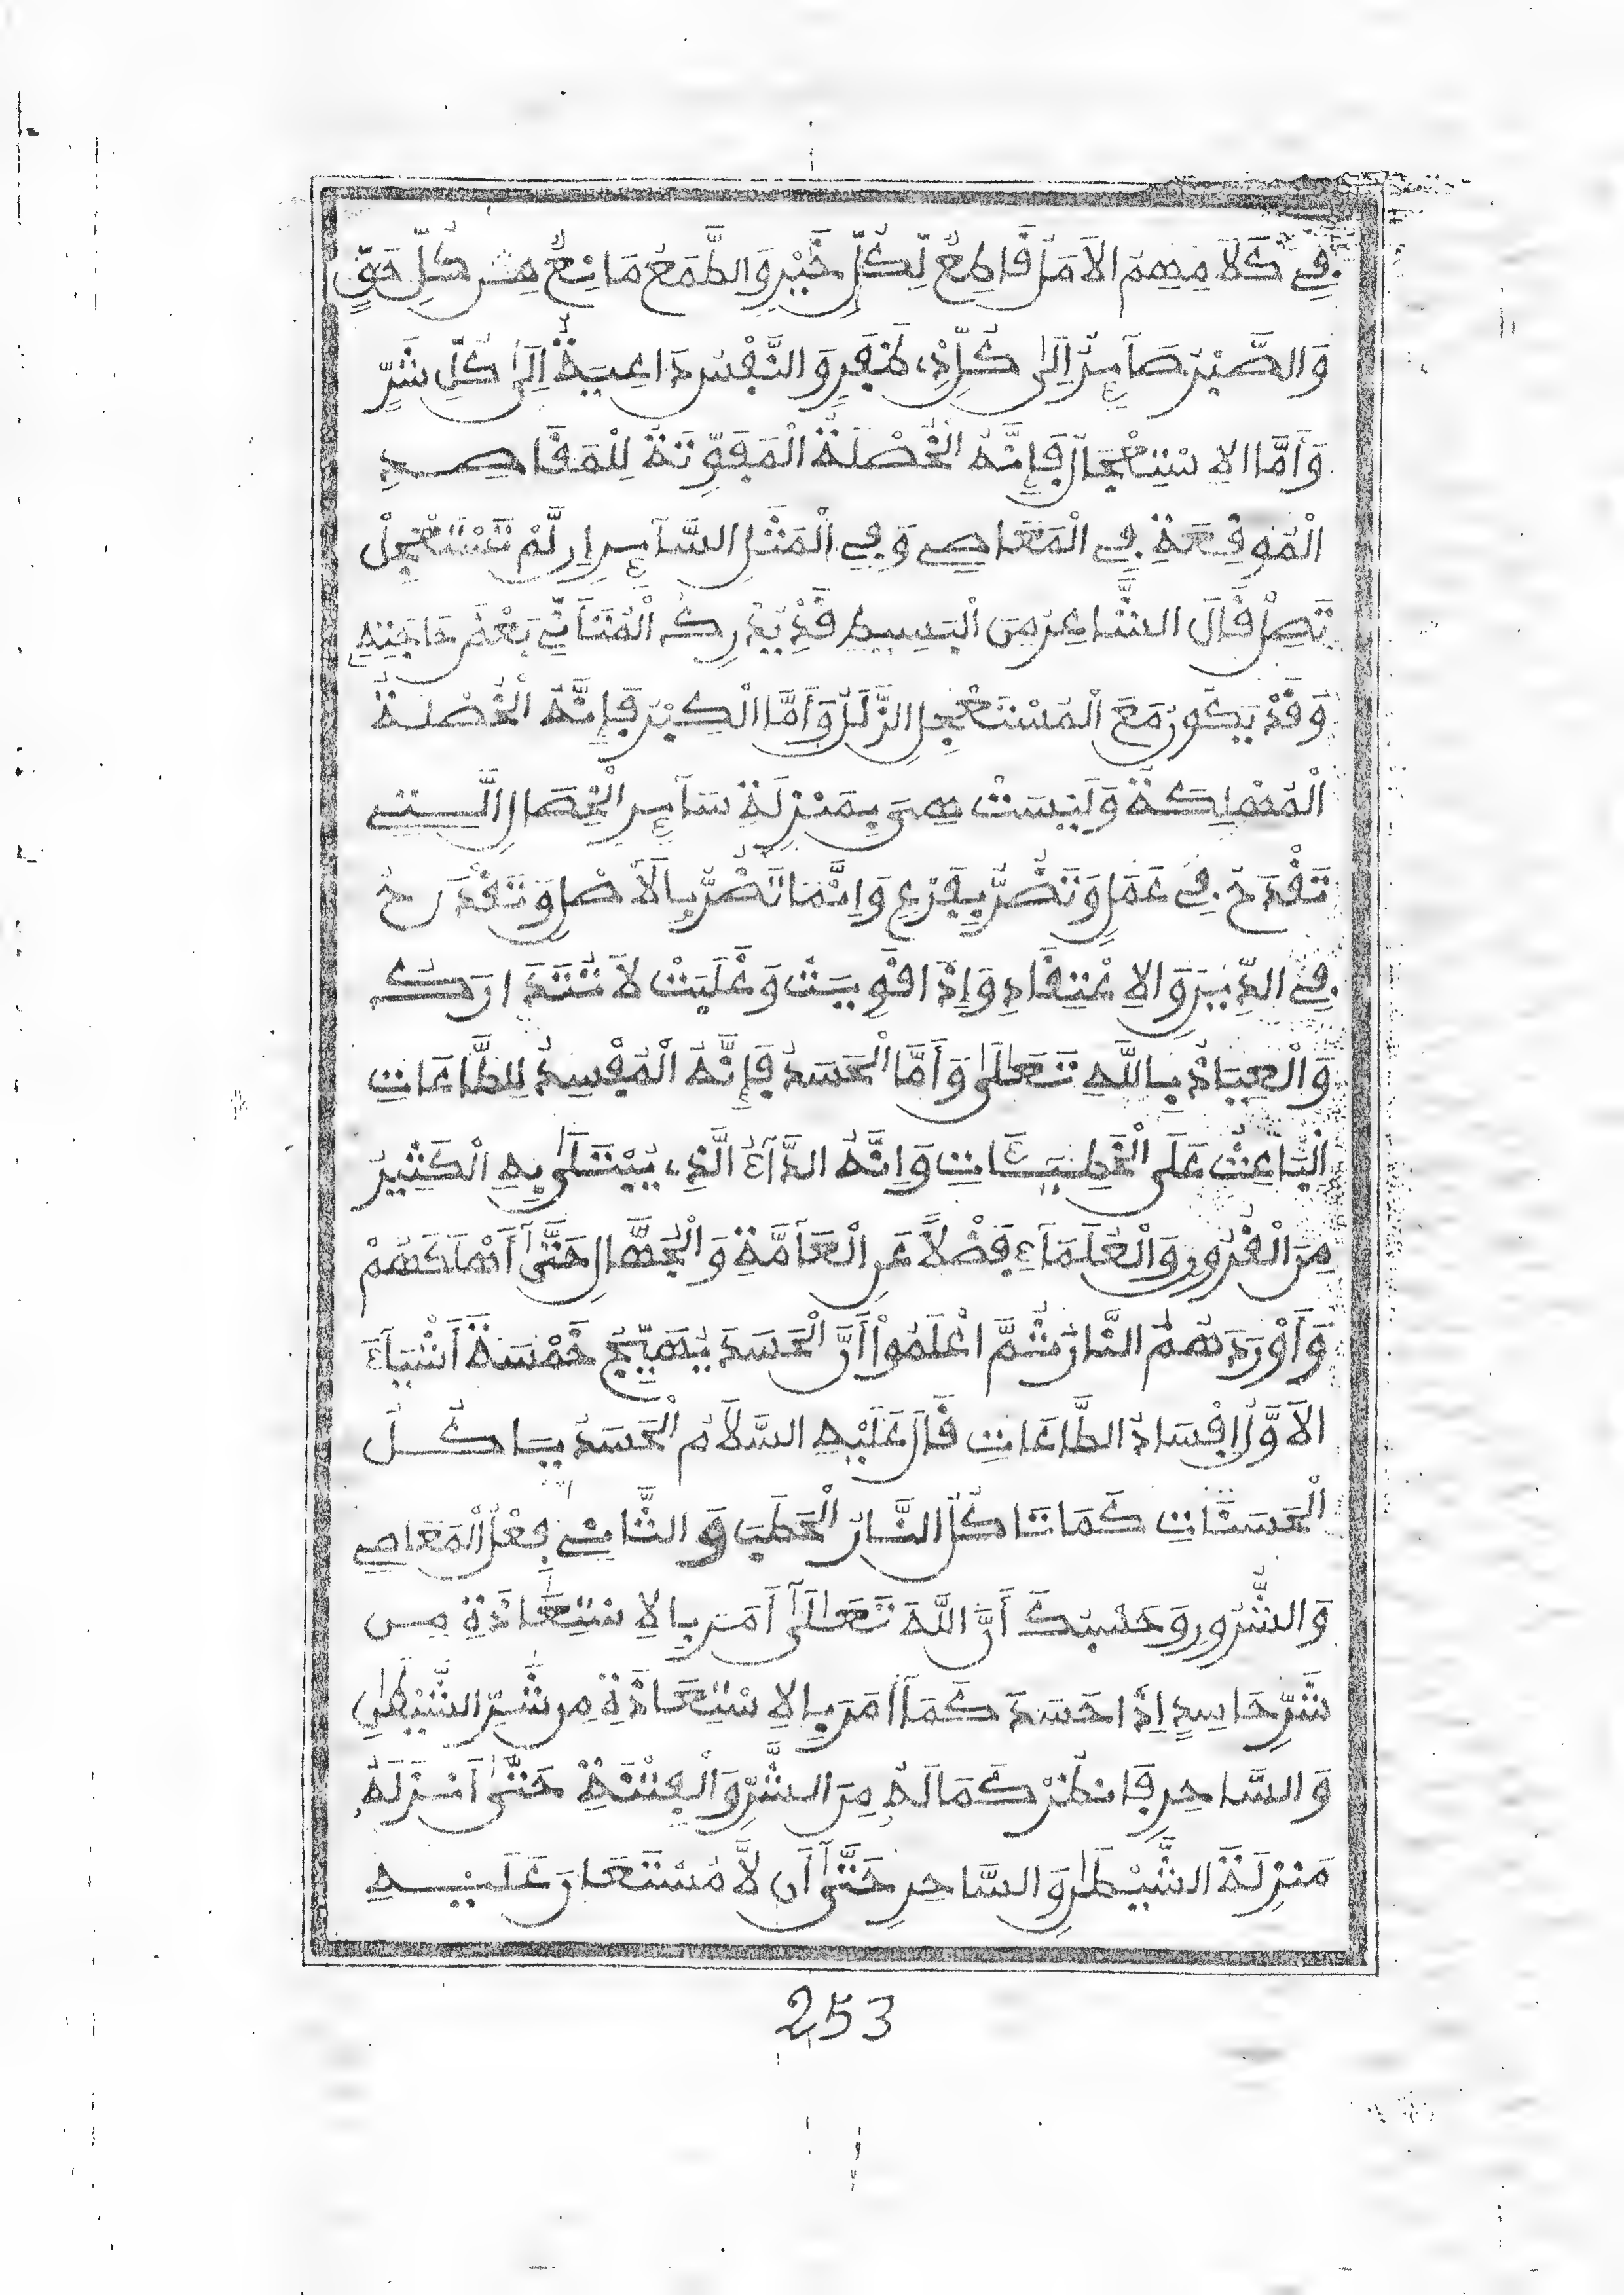 فِي كَلَامِهِمُ الْأَمَلُ قَاطِعٌ لِّكُلِّ خَيْرٍ وَالطَّمَعُ مَانِعٌ مِّن كُلِّ حَقٍّ
وَالصَّبْرُ صَآئِرٌ إِلَىٰ كُلِّ ذِي ظَفَرٍ وَالنَّفْسُ دَاعِيَةٌ إِلَىٰ كُلِّ شَرٍّ
وَأَمَّا الِاسْتِعْجَالُ فَإِنَّهُ الْخَصْلَةُ الْمُفَوِّتَةُ لِلْمَقَاصِدِ
الْمُوقِعَةُ فِي الْمَعَاصِي وَفِي الْمَثَلِ السَّآئِرِ إِن لَّمْ تَسْتَعْجِلْ
تَصِلْ قَالَ الشَّاعِرُ مِنَ الْبَسِيطِ قَدْ يُدْرِكُ الْمُتَأَنِّي بَعْضَ حَاجَتِهِ
وَقَدْ يَكُونُ مَعَ الْمُسْتَعْجِلِ الزَّلَلُ وَأَمَّا الْكِبْرُ فَإِنَّهُ الْخَصْلَةُ
الْمُهْلِكَةُ وَلَيْسَتْ هِيَ بِمَنْزِلَةِ سَآئِرِ الْخِصَالِ الَّتِي
تَقْدَحُ فِي عَمَلٍ وَتَضُرُّ بِفَرْعٍ وَإِنَّمَا تَضُرُّ بِالْأَصْلِ وَتَقْدَحُ
فِي الدِّينِ وَالِاعْتِقَادِ وَإِذَا قَوِيَتْ وَغَلَبَتْ لَا تُتَدَارَكُ
وَالْعِيَاذُ بِاللَّهِ تَعَالَىٰ وَأَمَّا الْحَسَدُ فَإِنَّهُ الْمُفْسِدُ لِلطَّاعَاتِ
الْبَاعِثُ عَلَى الْخَطِيئَاتِ وَإِنَّهُ الدَّآءُ الَّذِي يُبْتَلَىٰ بِهِ الْكَثِيرُ
مِنَ الْقُرُونِ وَالْعُلَمَآءِ فَضْلًا عَنِ الْعَآمَّةِ وَالْجُهَّالِ حَتَّىٰ أَهْلَكَهُمْ
وَأَوْرَدَهُمُ النَّارَ ثُمَّ اعْلَمُوا أَنَّ الْحَسَدَ يُهَيِّجُ خَمْسَةَ أَشْيَآءَ
الْأَوَّلُ إِفْسَادُ الطَّاعَاتِ قَالَ عَلَيْهِ السَّلَامُ الْحَسَدُ يَاكُلُ
الْحَسَنَاتِ كَمَا تَاكُلُ النَّارُ الْحَطَبَ وَالثَّانِي فِعْلُ الْمَعَاصِي
وَالشُّرُورِ وَحَسْبُكَ أَنَّ اللَّهَ تَعَالَىٰ أَمَرَ بِالِاسْتِعَاذَةِ مِن
شَرِّ حَاسِدٍ إِذَا حَسَدَ كَمَآ أَمَرَ بِالِاسْتِعَاذَةِ مِن شَرِّ الشَّيْطَٰنِ
وَالسَّاحِرِ فَانظُرْ كَمَا لَهُ مِنَ الشَّرِّ وَالْفِتْنَةِ حَتَّىٰ أَنْزَلَهُ
مَنْزِلَةَ الشَّيْطَٰنِ وَالسَّاحِرِ حَتَّىٰ أَن لَّا مُسْتَعَانَ عَلَيْهِ
253